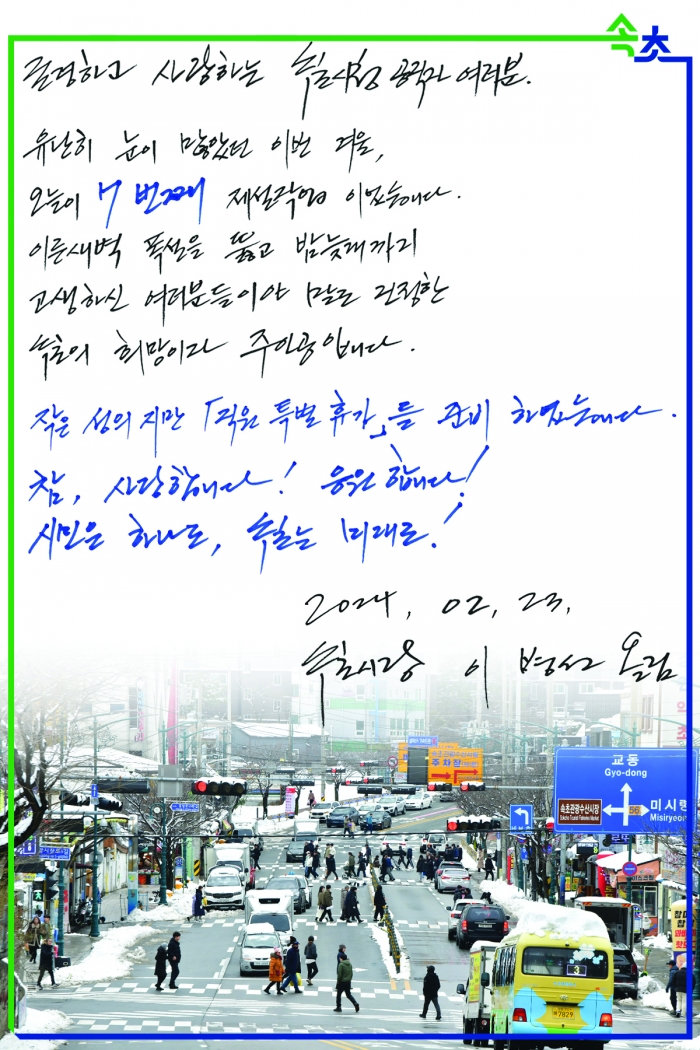 속초
존경하고 사랑하는 속초시청 공직자 여러분.
유난히 눈이 많았던 이번 겨울,
오늘이 7번째 제설작업 이었습니다.
이른새벽 폭설을 뚫고 밤늦게까지
고생하신 여러분들이야 말로 진정한
속초의 희망이자 주인공입니다.
작은 성의지만 「직원 특별 휴가」를 준비 하였습니다.
참, 사랑합니다! 응원합니다!
시민은 하나로, 속초는 미래로!
2024. 02. 23.
속초시장 이병선 올림
주차장
교동
Gyo-dong
속초관광수산시장
Sokcho Tourist Fisheries Market
56
미시령
Misiryeong
3
7829